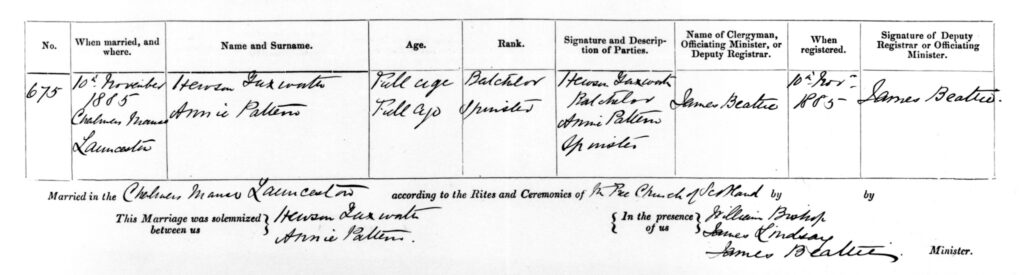 No.
When married, and
where.
Name and Surname.
Age.
Rank.
Signature and Descrip-
tion of Parties.
Name of Clergyman,
Officiating Minister, or
Deputy Registrar.
When
registered.
Signature of Deputy
Registrar or Officiating
Minister.
675
10th November
1885
Chalmers Manse
Launceston
Hewson
Annie Pattern
Full age
Full Age
Batchlor
Spinster
Hewson
Batchlor
Annie Pattern
Spinster
James Beattie
10th Novr
1885
James Beattie.
Married in the Chalmers Manse Launceston according to the Rites and Ceremonies of Free Church of Scotland by by
This Marriage was solemnized
between us
Hewson
Annie Pattern.
In the presence
of us
William Bishop
James Lindsay
James Beattie Minister.